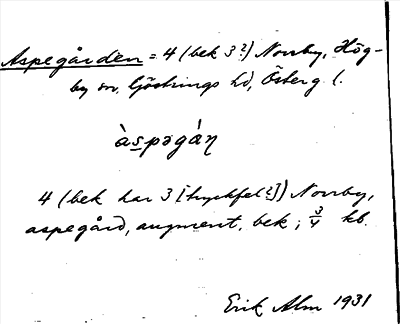 Aspegården = 4 (bek 3?) Norrby, Hög-
by sn, Göstrings hd, Österg l.
àspəgán
4 (bek har 3 [tryckfel?]) Norrby,
aspegård, augment, bek; 3/4 kb.
Erik Alm 1931